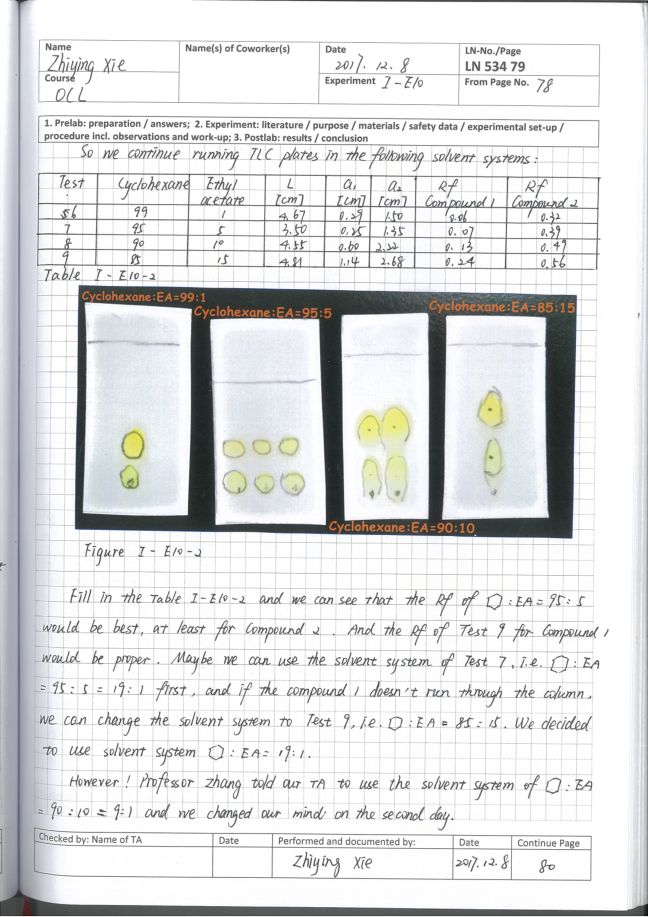 Name
Zhiying Xie
Name(s) of Coworker(s)
Date
2017. 12. 8
LN-No./Page
LN 534 79
Course
OCL
Experiment I-E10
From Page No. 78
1. Prelab: preparation / answers; 2. Experiment: literature / purpose / materials / safety data / experimental set-up /
procedure incl. observations and work-up; 3. Postlab: results / conclusion
So we continue running TLC plates in the following solvent systems:
Test Cyclohexane Ethyl acetate L [cm] a1 [cm] a2 [cm] Rf Compound 1 Rf Compound 2
6 99 1 4.67 0.29 1.50 0.06 0.32
7 95 5 3.50 0.25 1.35 0.07 0.39
8 90 10 4.55 0.60 2.22 0.13 0.49
9 85 15 4.81 1.14 2.68 0.24 0.56
Table I-E10-2
Cyclohexane:EA=99:1
Cyclohexane:EA=95:5
Cyclohexane:EA=85:15
Cyclohexane:EA=90:10
Figure I-E10-2
Fill in the Table I-E10-2 and we can see that the Rf of ⬡:EA=95:5
would be best, at least for Compound 2. And the Rf of Test 9 for Compound 1
would be proper. Maybe we can use the solvent system of Test 7, i.e. ⬡:EA
=95:5=19:1 first, and if the compound 1 doesn't run through the column,
we can change the solvent system to Test 9, i.e. ⬡:EA=85:15. We decided
to use solvent system ⬡:EA=19:1.
However! Professor Zhang told our TA to use the solvent system of ⬡:EA
=90:10=9:1 and we changed our minds on the second day.
Checked by: Name of TA
Date
Performed and documented by:
Zhiying Xie
Date
2017.12.8
Continue Page
80